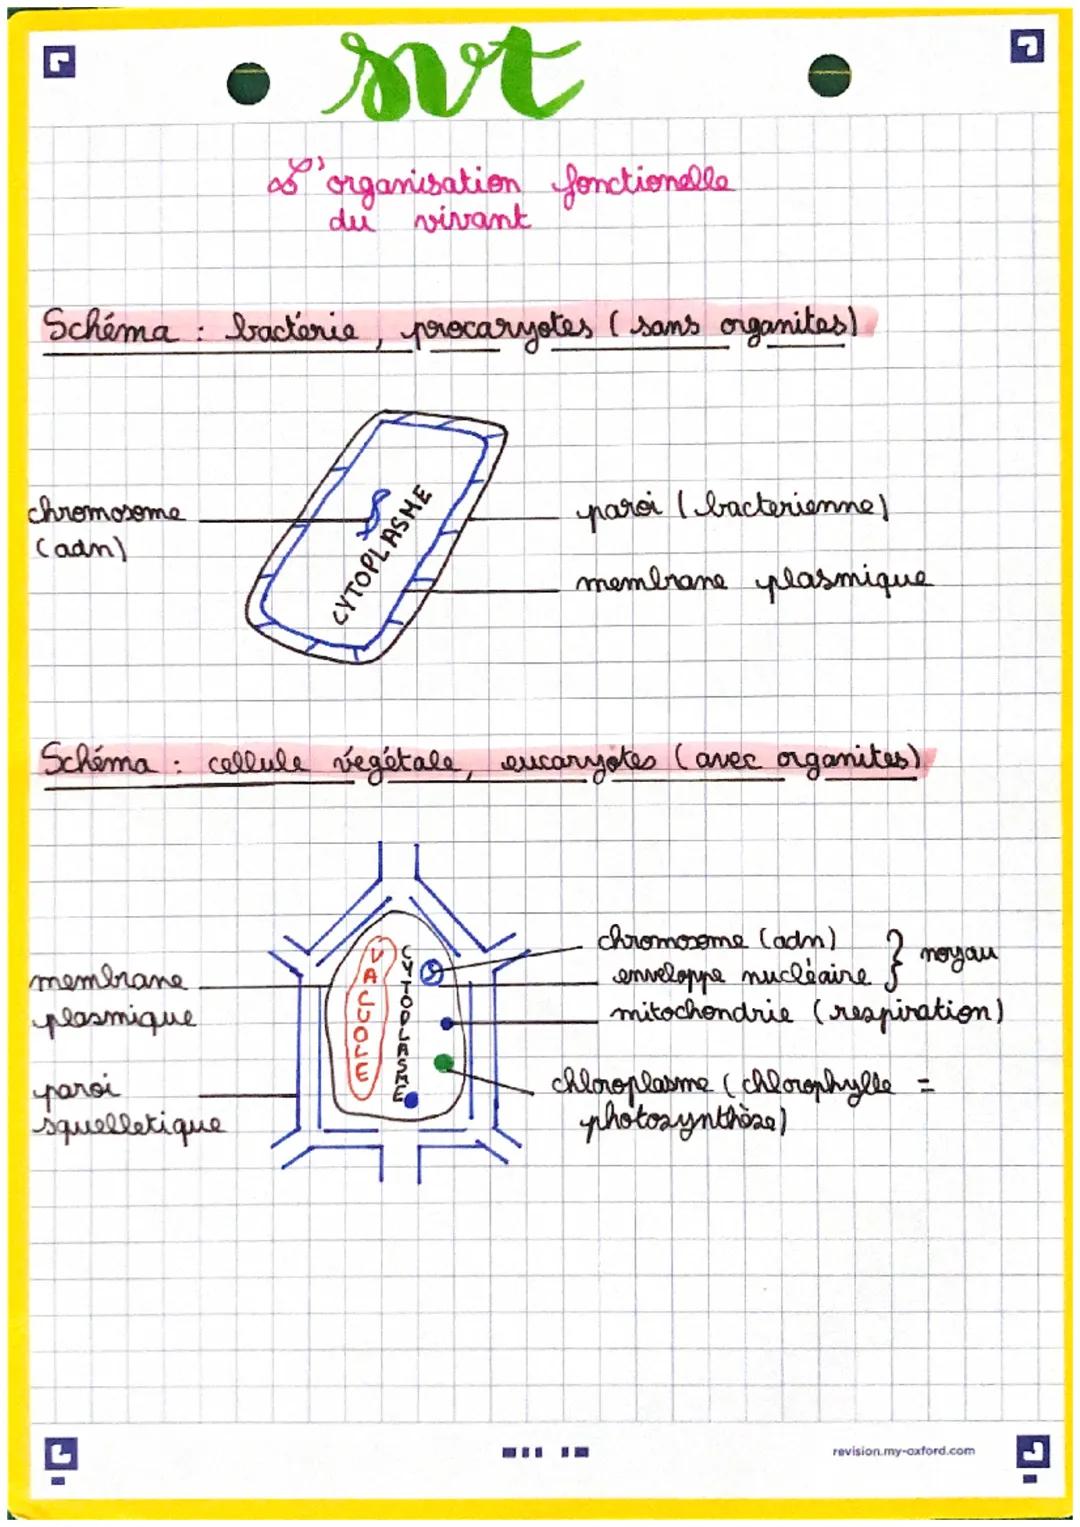 svt
L'organisation fonctionelle
du vivant
Schéma : bactérie, procaryotes (sans organites)
chromosome
(adn)
CYTOPLASME
paroi (bacterienne)
membrane plasmique
Schéma : cellule végétale, eucaryotes (avec organites)
membrane
plasmique
paroi
squelletique
VACUOLE
CYTOPLASME
chromosome (adn)
enveloppe nucléaire } noyau
mitochondrie (respiration)
chloroplasme (chlorophylle =
photosynthèse)
revision.my-oxford.com